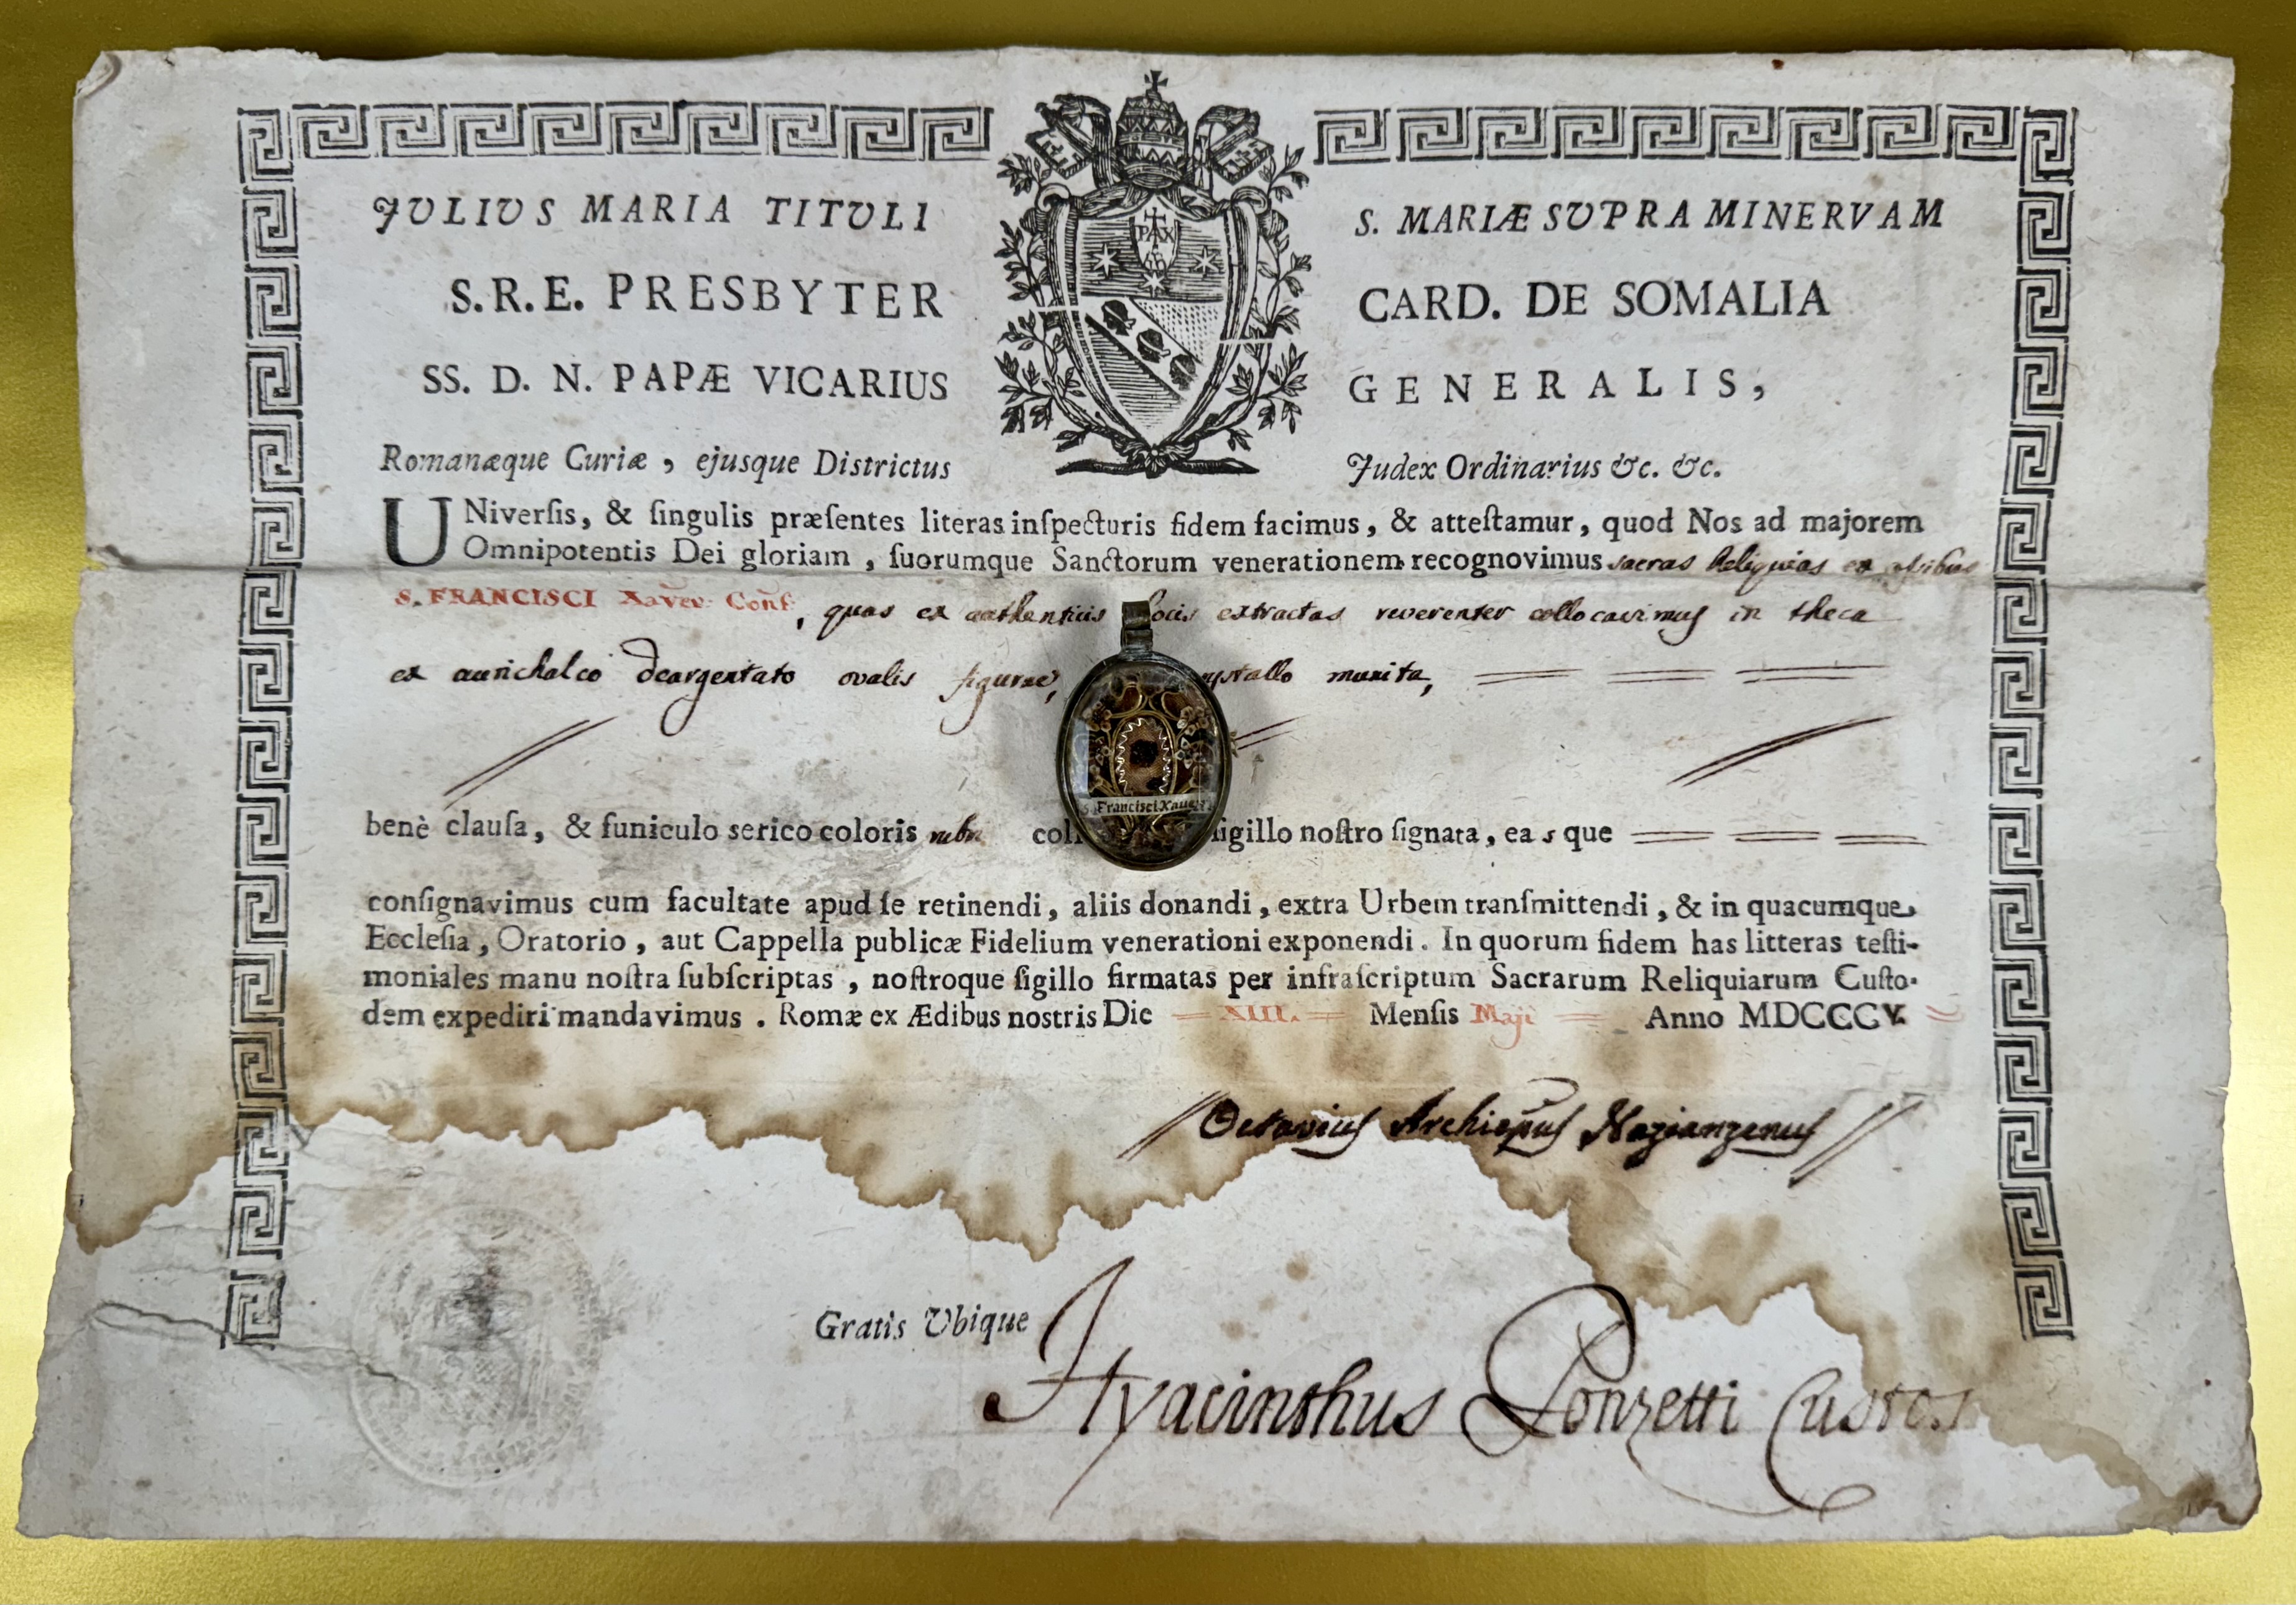 JULIUS MARIA TITULI S. MARIÆ SUPRA MINERVAM
S.R.E. PRESBYTER CARD. DE SOMALIA
SS. D. N. PAPÆ VICARIUS GENERALIS,
Romanæque Curiæ, ejusque Districtus Judex Ordinarius &c. &c.
PAX
UNiverſis, & ſingulis præſentes literas inſpecturis fidem facimus, & atteſtamur, quod Nos ad majorem
Omnipotentis Dei gloriam, ſuorumque Sanctorum venerationem recognovimus sacras Reliquias ex ossibus
S. FRANCISCI Xaver Conf, quas ex authenticis locis extractas reverenter collocavimus in theca
ex aurichalco deargentato ovalis figuræ, munita,
S. Francisci Xaverii
benè clauſa, & funiculo serico coloris rubri ſigillo noſtro ſignata, eas que
conſignavimus cum facultate apud ſe retinendi, aliis donandi, extra Urbem tranſmittendi, & in quacumque
Eccleſia, Oratorio, aut Cappella publicæ Fidelium venerationi exponendi. In quorum fidem has litteras teſti-
moniales manu noſtra ſubſcriptas, noſtroque ſigillo firmatas per infraſcriptum Sacrarum Reliquiarum Cuſto-
dem expediri mandavimus. Romæ ex Ædibus nostris Die XIII. Menſis Maji Anno MDCCCV.
Octavius Archiepus Nazianzenus
Gratis Ubique
Hyacinthus Ponzetti Custos